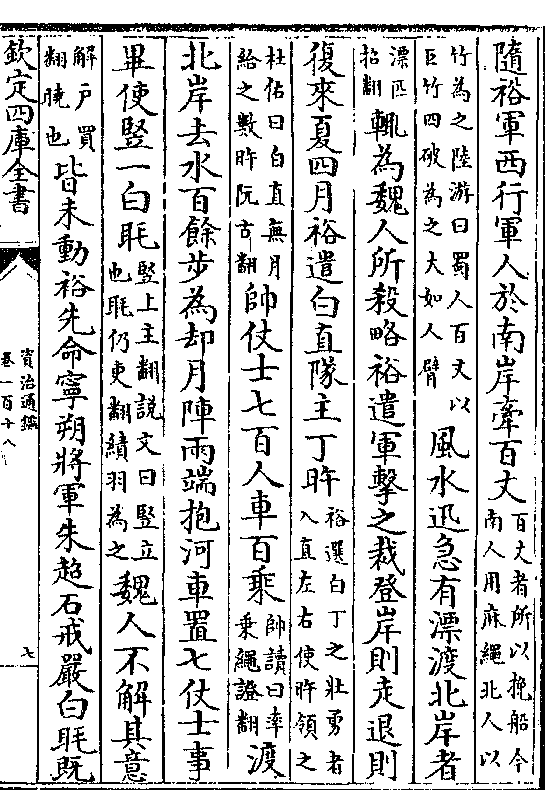 隨裕軍西行軍人於南岸牽百丈百丈者所以挽船今南人用麻繩北人以
竹為之陸游曰蜀人百丈以巨竹四破為之大如人臂風水迅急有漂渡北岸者
漂匹招翻輒為魏人所殺略裕遣軍擊之裁登岸則走退則
復來夏四月裕遣白直隊主丁旿裕選白丁之壯勇者入直左右使旿領之
杜佑曰白直無月給之數旿阮古翻帥仗士七百人車百乘帥讀曰率乘繩證翻渡
北岸去水百餘步為却月陣兩端抱河車置七仗士事
畢使豎一白毦豎上主翻說文曰豎立也毦仍吏翻績羽為之魏人不解其意
解戶買翻曉也皆未動裕先命寧朔將軍朱超石戒嚴白毦既
欽定四庫全書
資治通鑑
卷一百十八
七